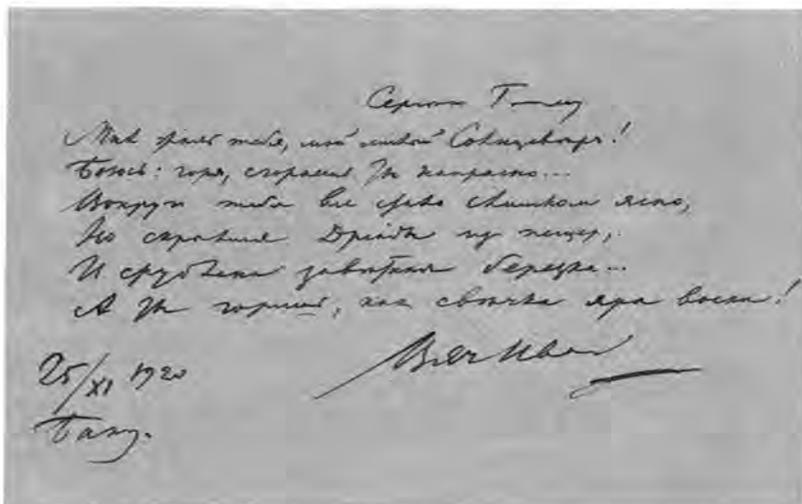 Сергею
Мнѣ жаль тебя, мой милый Солнцевѣръ!
Боюсь: горя, сгораешь ты напрасно...
Вокруг тебя все слишком ясно,
Но Дріады из пещер,
И срублена завѣтная березка...
А ты горишь, как свѣчка яра воска!
Вяч Иван
25/XI 1920
Баку.